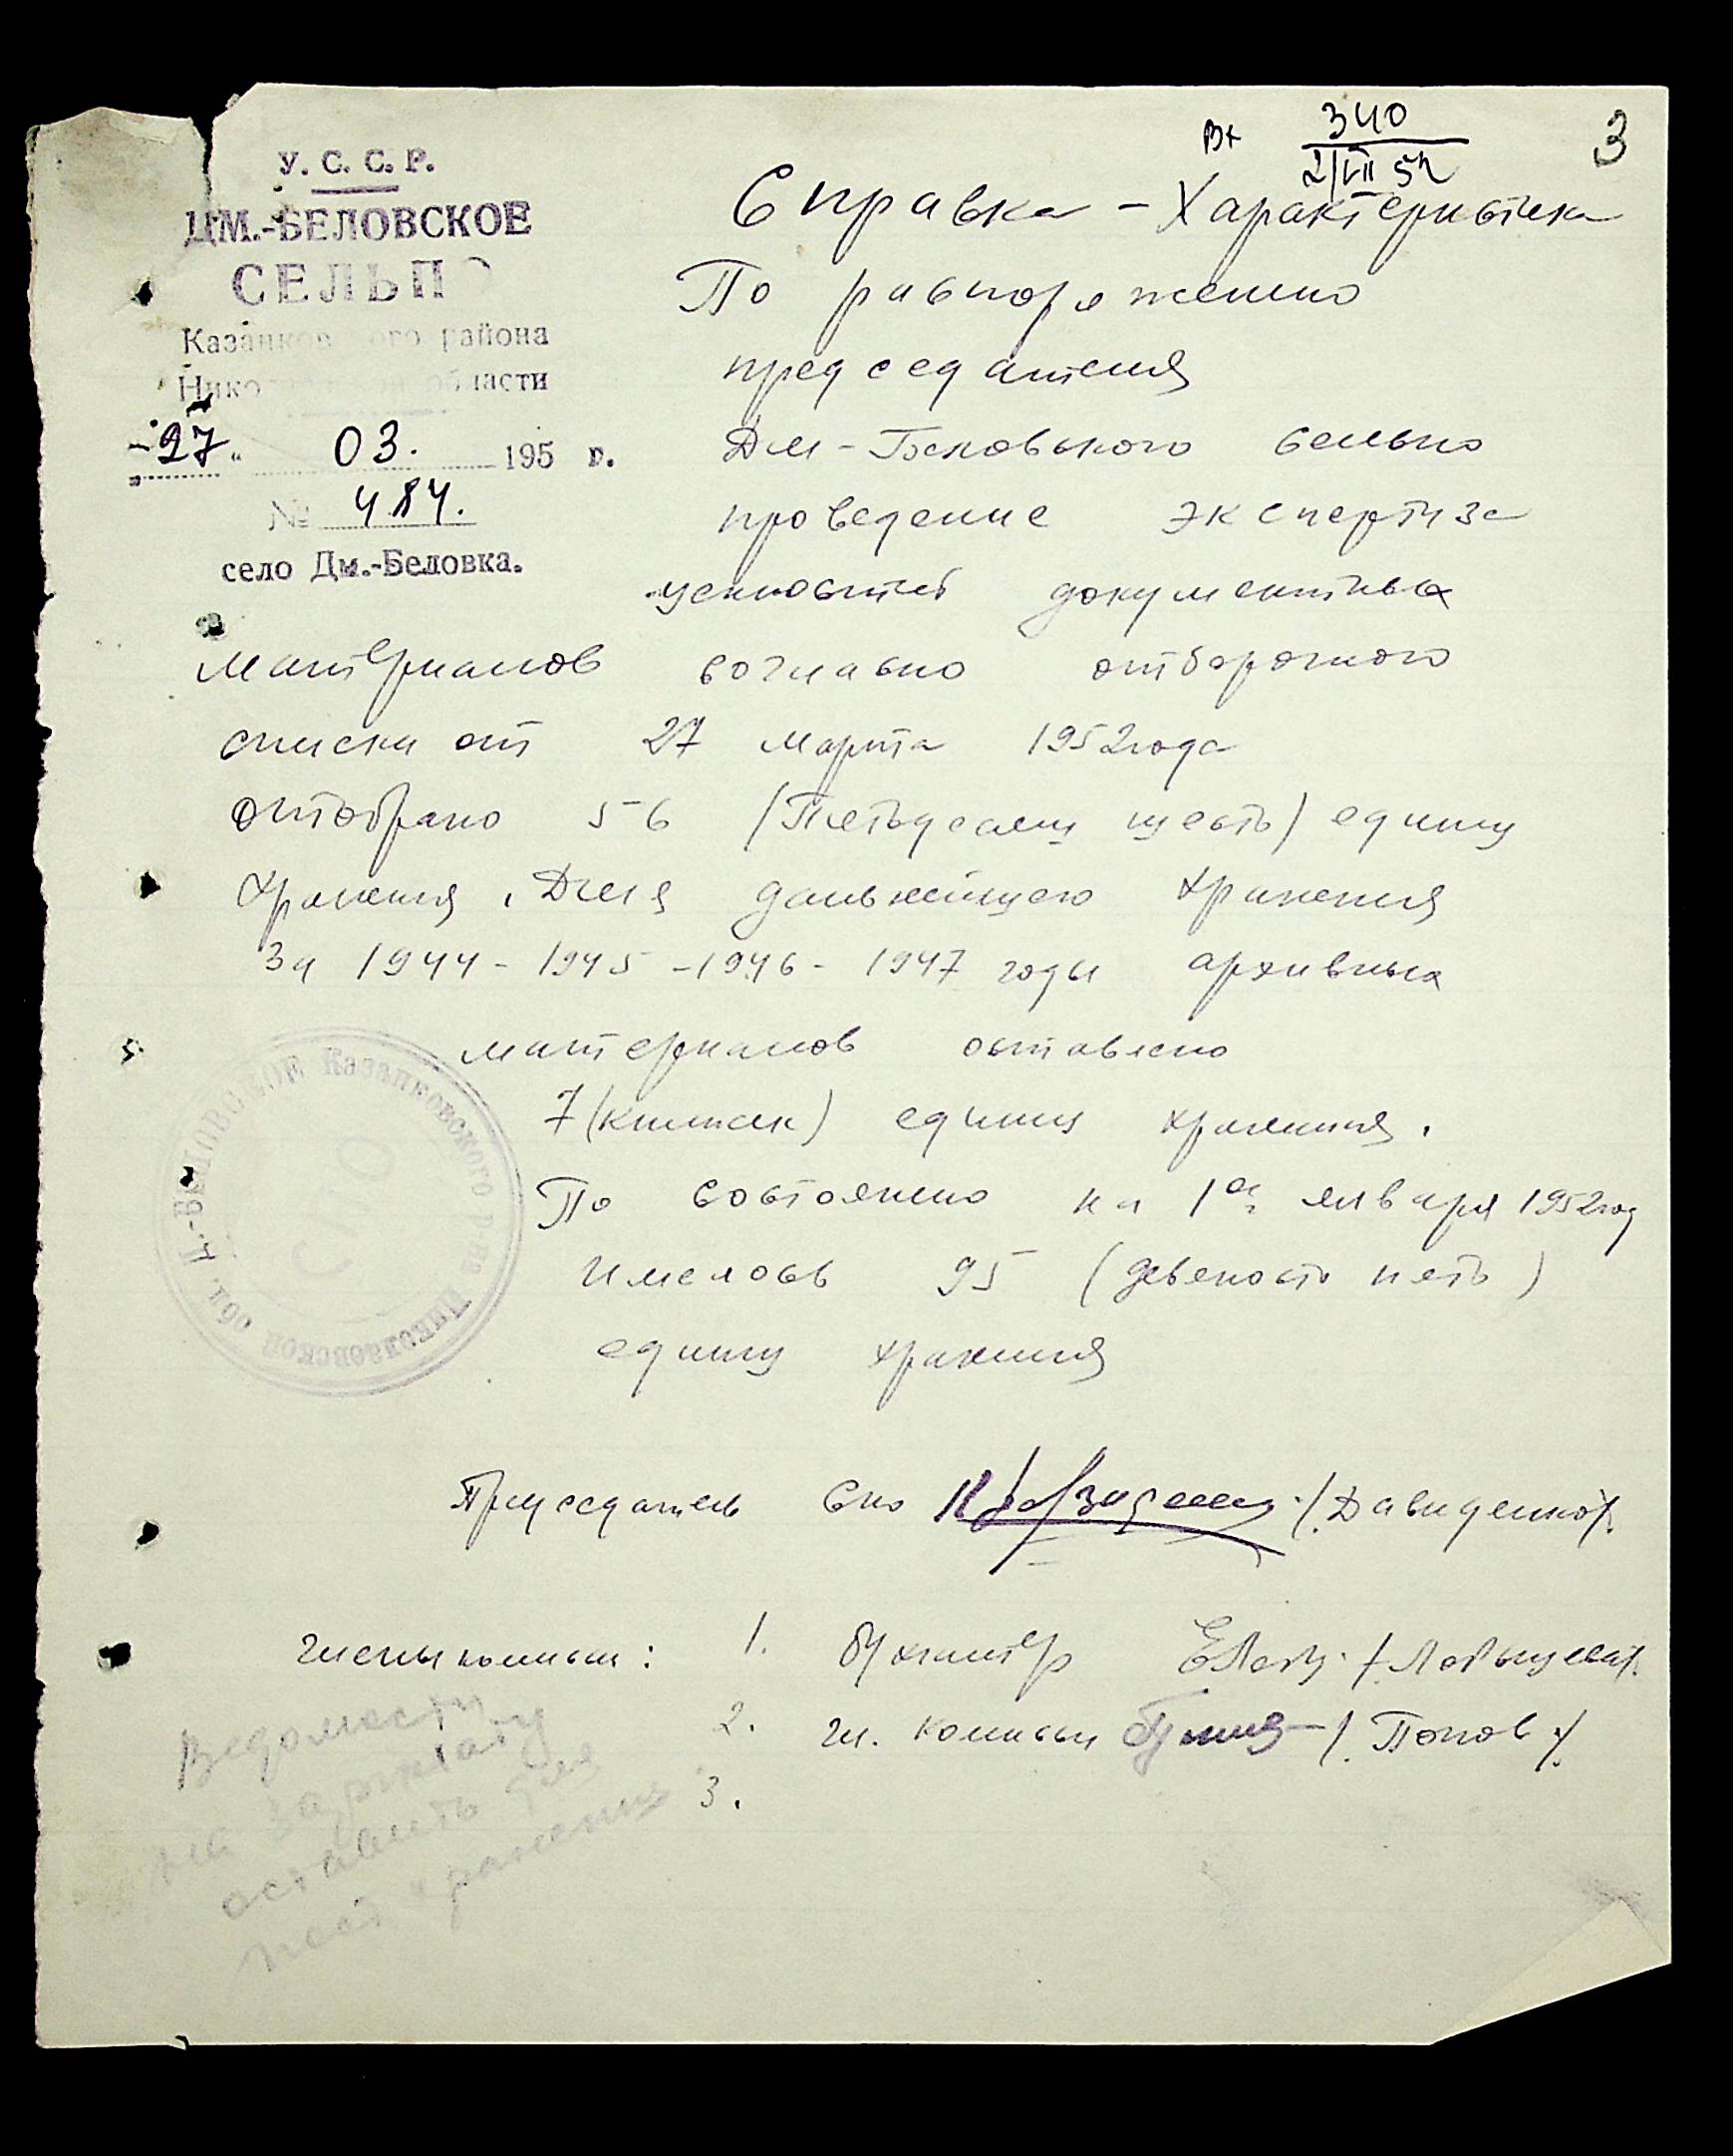 Вх 340
2/VII 52
3
У. С. С. Р.
ДМ.-БЕЛОВСКОЕ
СЕЛЬПО
Казанковского района
Николаевской области
"27" 03. 195 г.
№ 484.
село Дм.-Беловка.
Справка - Характеристика
По распоряжению
председателя
Дм-Беловского сельпо
проведение экспертиза
ценностей документных
материалов согласно отборочного
списка от 27 марта 1952 года
отобрано 56 (Петьдесят шесть) единиц
хранения. Для дальнейшего хранения
За 1944-1945-1946-1947 годы архивных
материалов оставлено
7 (книжек) единиц хранения.
По состоянию на 1ое января 1952 год
Имелось 95 (девеносто петь)
единиц хранения
Д.-БЕЛОВСКОЕ Казанковского р-на Николаевской обл.
СПО
Председатель Спо /.Давиденко/.
члены комисии: 1. бухгалтер
2. чл. комисии /.Попов./
3.
Ведомости
на зарплату
оставить для
пост хранения